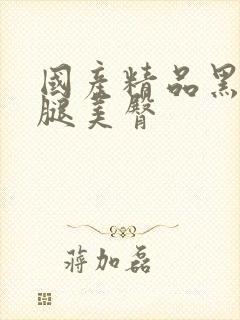 國产精品黑
腿美臀
蒋加磊